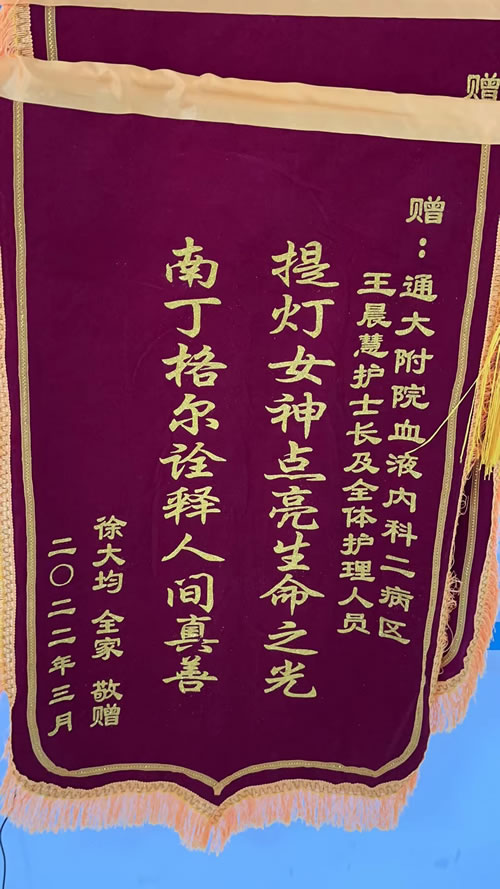 赠
赠：通大附院血液内科二病区
王晨慧护士长及全体护理人员
提灯女神点亮生命之光
南丁格尔诠释人间真善
徐大均 全家 敬赠
二〇二二年三月